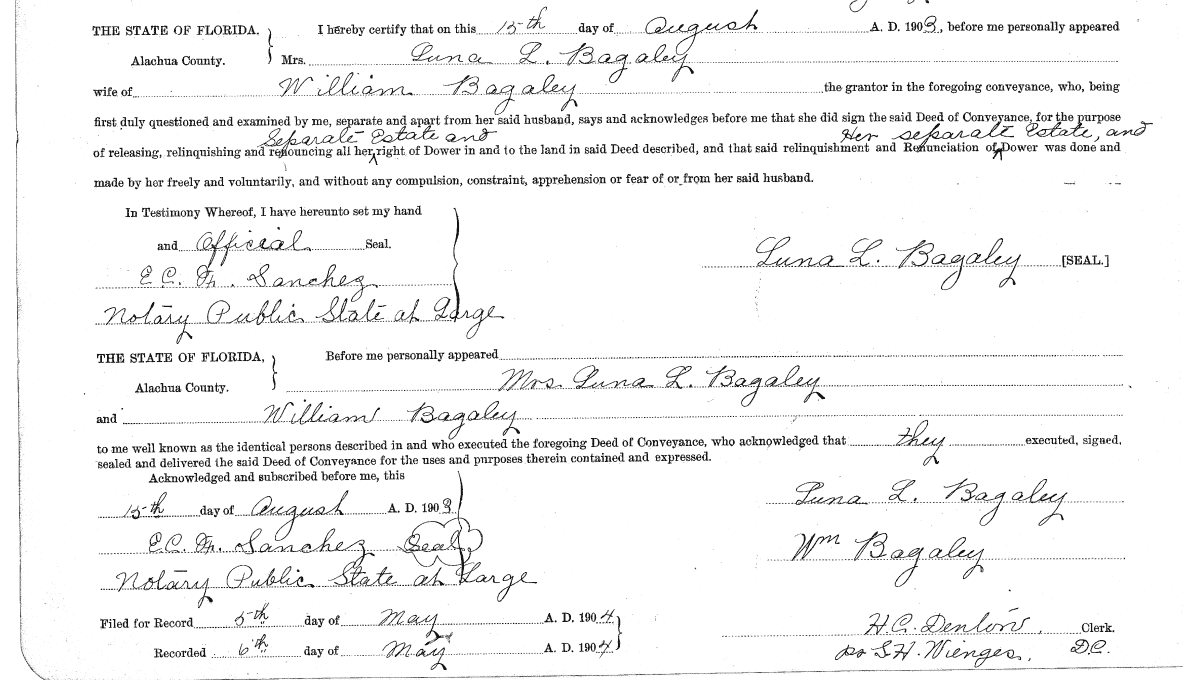 THE STATE OF FLORIDA. I hereby certify that on this 15th day of August A. D. 1903, before me personally appeared
Alachua County. Mrs. Luna L. Bagaley
wife of William Bagaley the grantor in the foregoing conveyance, who, being
first duly questioned and examined by me, separate and apart from her said husband, says and acknowledges before me that she did sign the said Deed of Conveyance, for the purpose
Separate Estate and Her separate Estate, and
of releasing, relinquishing and renouncing all her right of Dower in and to the land in said Deed described, and that said relinquishment and Renunciation of Dower was done and
made by her freely and voluntarily, and without any compulsion, constraint, apprehension or fear of or from her said husband.
In Testimony Whereof, I have hereunto set my hand
and Official Seal.
Luna L. Bagaley [SEAL.]
E. C. Sanchez
Notary Public State at Large
THE STATE OF FLORIDA, Before me personally appeared
Alachua County. Mrs. Luna L. Bagaley
and William Bagaley
to me well known as the identical persons described in and who executed the foregoing Deed of Conveyance, who acknowledged that they executed, signed,
sealed and delivered the said Deed of Conveyance for the uses and purposes therein contained and expressed.
Acknowledged and subscribed before me, this
15th day of August A. D. 1903
Luna L. Bagaley
E. C. Sanchez Seal
Wm Bagaley
Notary Public State at Large
Filed for Record 5th day of May A. D. 1904
H. C. Denton, Clerk.
Recorded 6th day of May A. D. 1904
per S. H. Wienges, D.C.